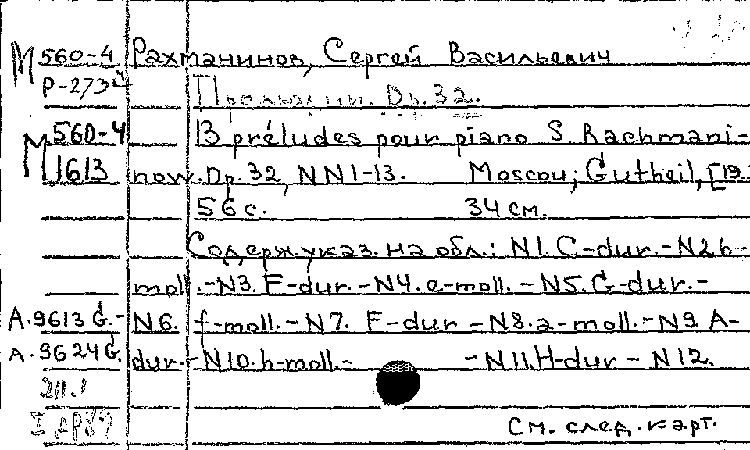 М 560-4 Рахманинов, Сергей Васильевич
Р-273
Прелюдии. Op.32.
М 560-4 13 préludes pour piano S. Rachmani-
1613 now. Op.32, NN1-13. Moscou; Gutheil, [19
56 с. 34 см.
Содерж. указ. на обл.: N1. C-dur.-N2 b-
moll.-N3. E-dur.-N4. e-moll.-N5. G-dur.-
А.9613 G.- N6. f-moll.-N7. F-dur-N8. a-moll.-N9 A-
А.9624 G. dur.-N10. h-moll.- -N11. H-dur-N12.
См. след. карт.